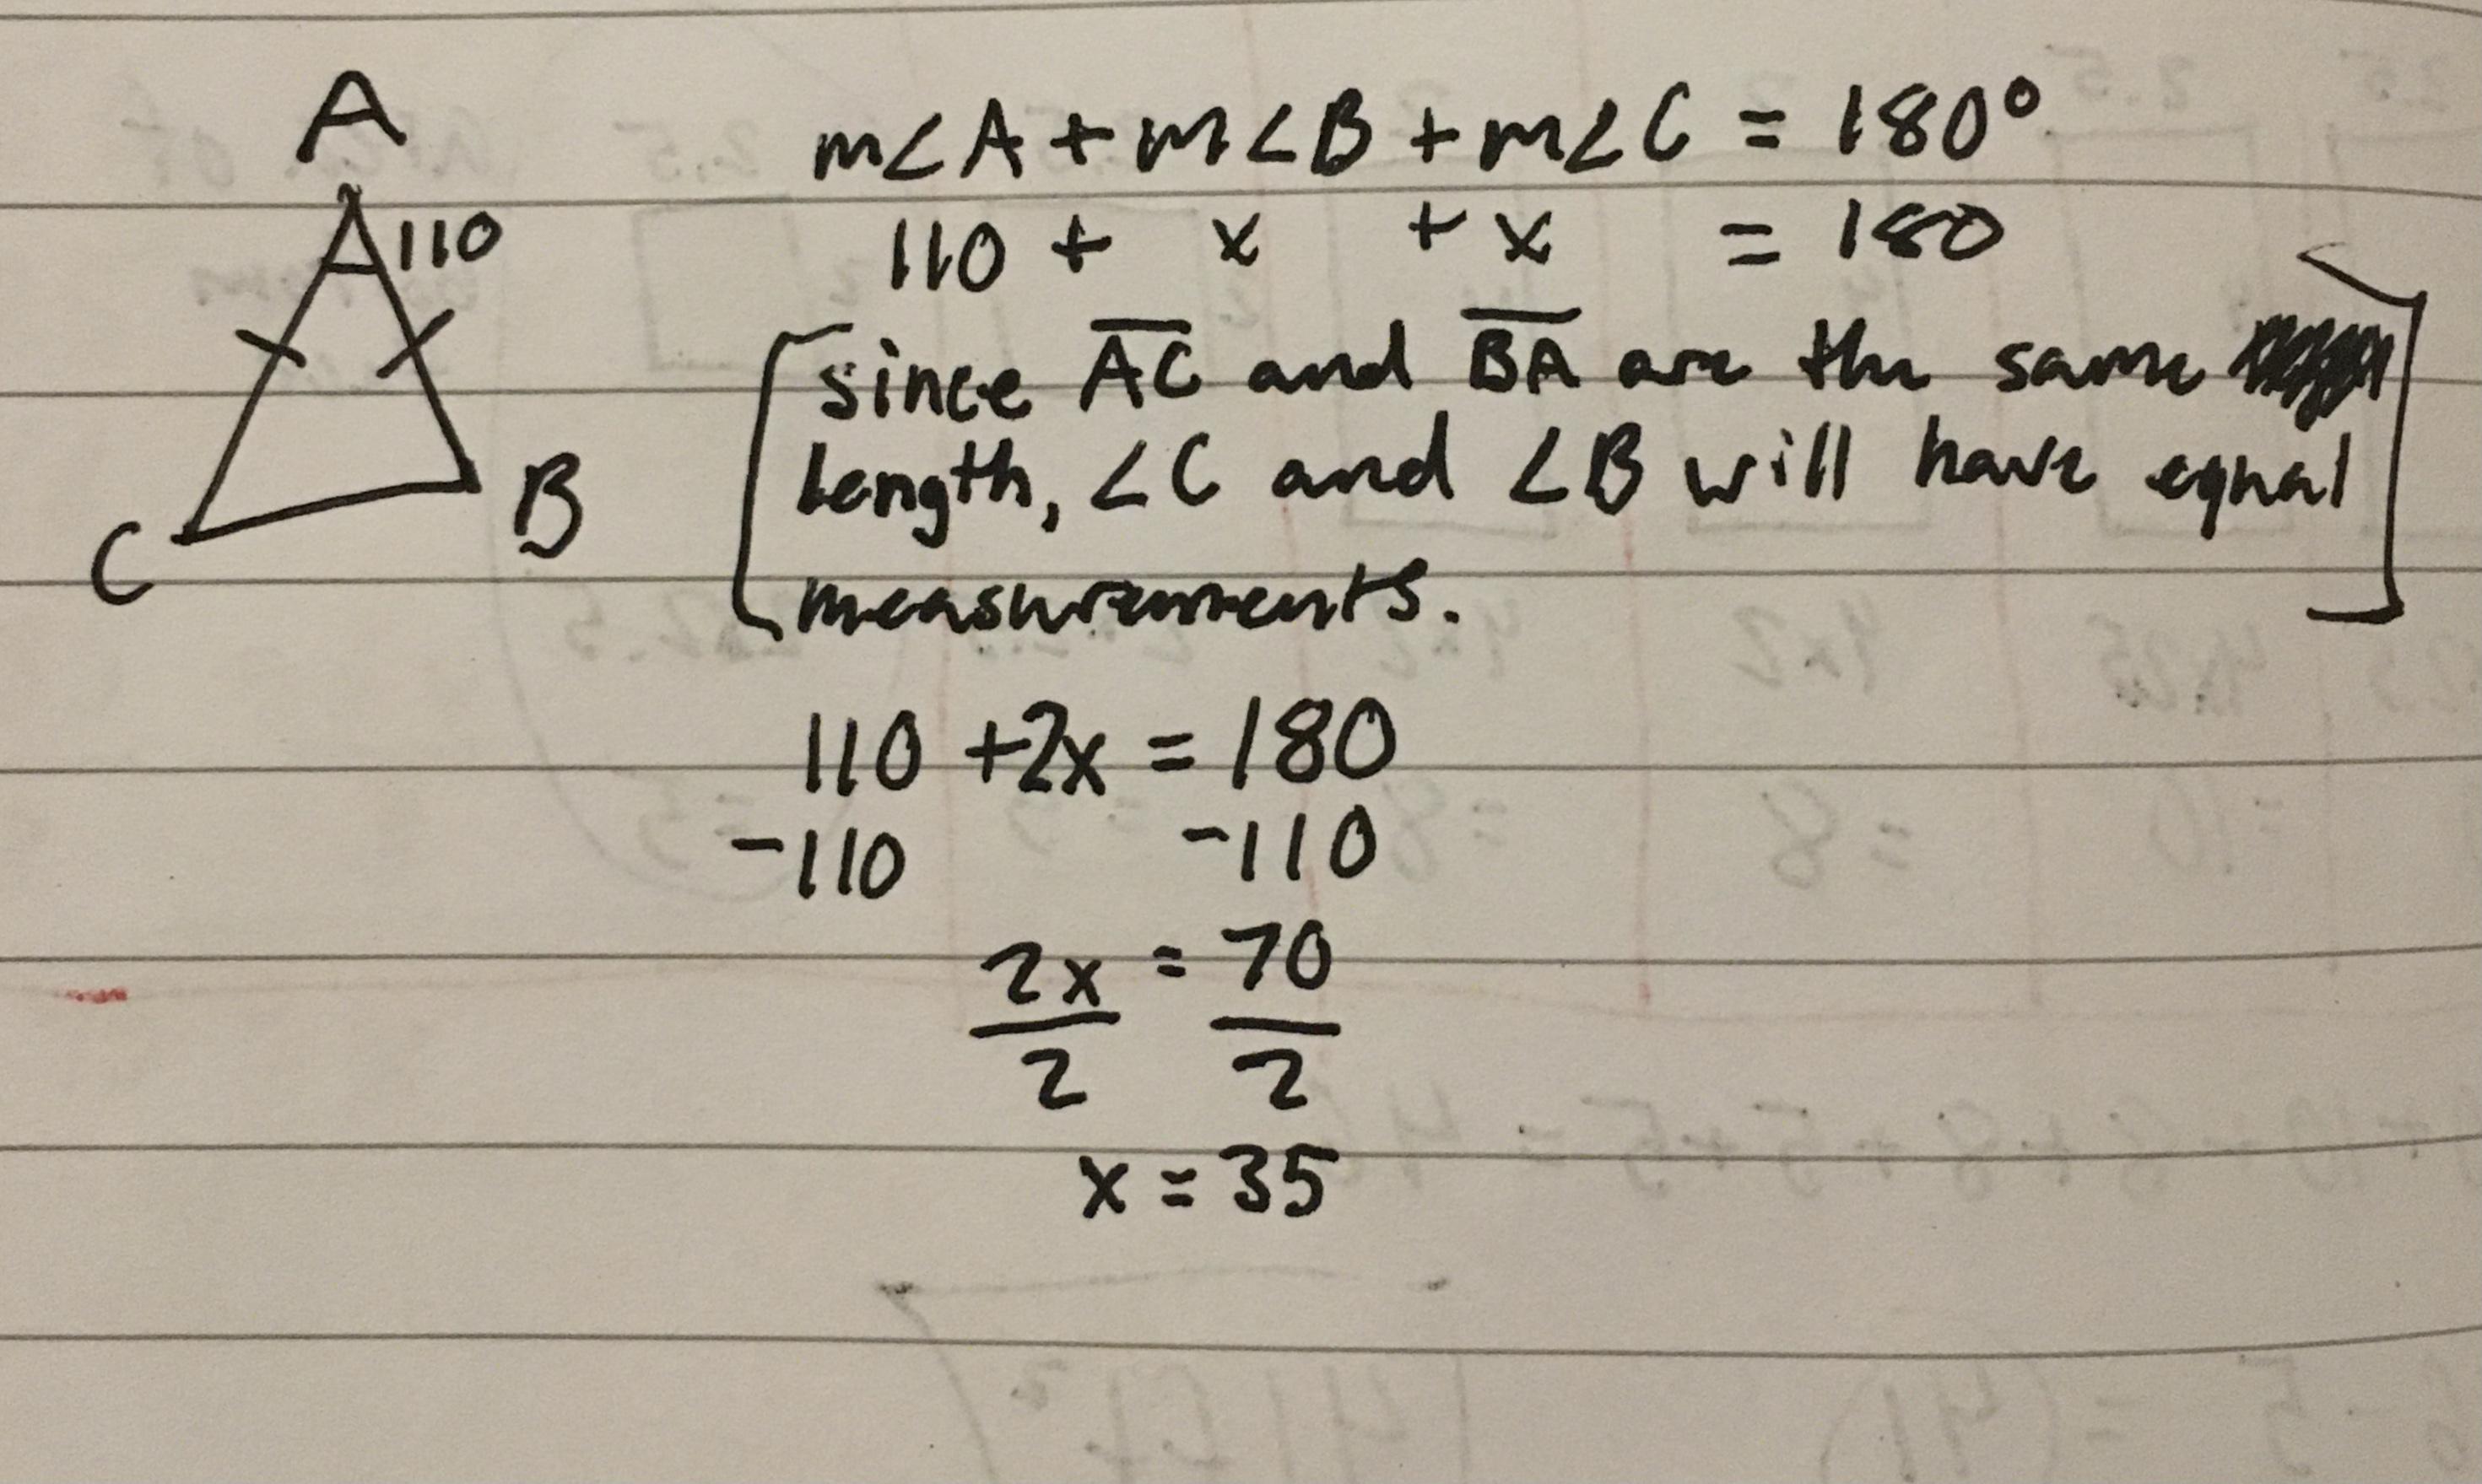 A
110
C
B
m∠A + m∠B + m∠C = 180°
110 + x + x = 180
since A̅C̅ and B̅A̅ are the same
length, ∠C and ∠B will have equal
measurements.
110 + 2x = 180
-110 -110
2x = 70
2 2
x = 35